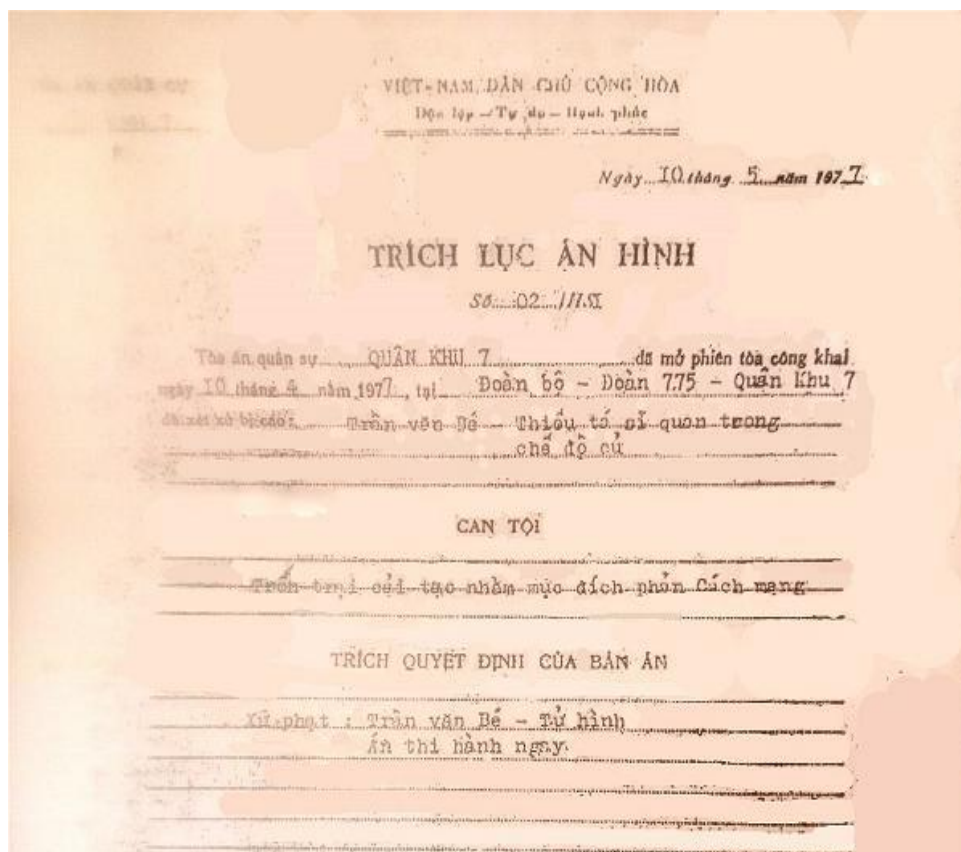 VIỆT-NAM DÂN CHỦ CỘNG HÒA
Độc lập – Tự do – Hạnh phúc
Ngày 10 tháng 5 năm 1977
TRÍCH LỤC ÁN HÌNH
Số 02 /HSI
Tòa án quân sự QUÂN KHU 7 đã mở phiên tòa công khai
ngày 10 tháng 4 năm 1977, tại Đoàn bộ - Đoàn 775 - Quân Khu 7
đã xét xử bị cáo: Trần văn Bé - Thiếu tá sĩ quan trong
chế độ củ
CAN TỘI
Trốn trại cải tạo nhằm mục đích phản Cách mạng
TRÍCH QUYẾT ĐỊNH CỦA BẢN ÁN
Xử phạt : Trần văn Bé - Tử hình
Án thi hành ngay.